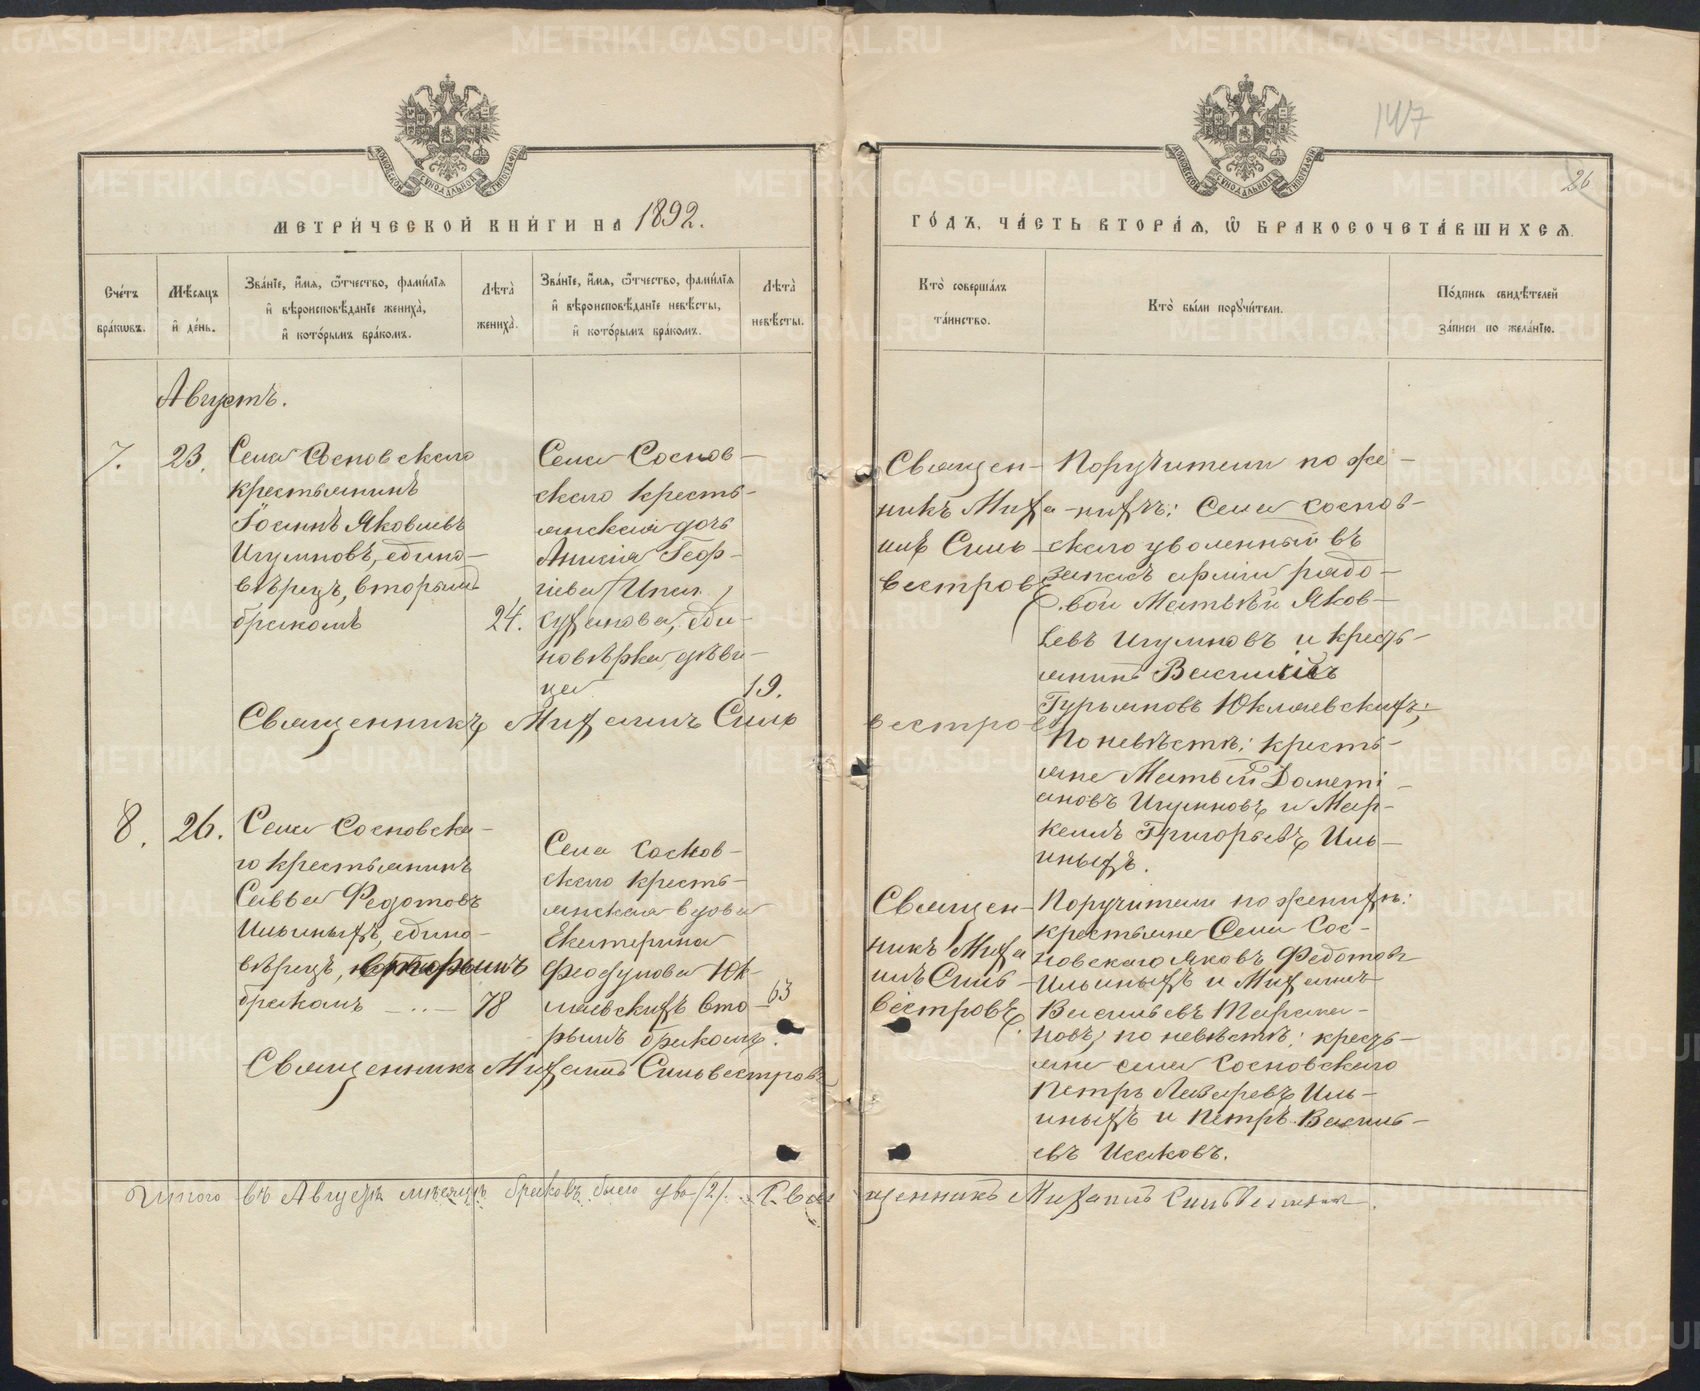 МЕТРИ́ЧЕСКОЙ КНИ́ГИ НА 1892.
ГО́ДЪ, ЧА́СТЬ ВТОРА́Я, Ѿ БРАКОСОЧЕТА́ВШИХСЯ.
147
26
Сче́тъ бра́ковъ.
Мѣ́сяцъ и́ де́нь.
Зва́ніе, и́мя, ѻ́тчество, фами́лія
и́ вѣроисповѣ́даніе жениха̀,
и́ кото́рымъ бра́комъ.
Лѣта̀ жениха̀.
Зва́ніе, и́мя, ѻ́тчество, фами́лія
и́ вѣроисповѣ́даніе невѣ́сты,
и́ кото́рымъ бра́комъ.
Лѣта̀ невѣ́сты.
Кто̀ соверша́лъ
та́инство.
Кто̀ бы́ли поручи́тели.
По́дпись свидѣ́телей
за́писи по жела́нію.
Августъ.
7.
23.
Села Сосновскаго
крестьянинъ
Іоаннъ Яковлевъ
Игумновъ, едино-
вѣрецъ, вторымъ
бракомъ
24.
Села Соснов-
скаго кресть-
янская дочь
Анисія Геор-
гіева
еди-
новѣрка, дѣви-
ца
19.
Священ-
никъ Миха-
илъ Силь-
вестровъ
Поручители по же-
нихѣ: Села Соснов-
скаго уволенный въ
запасъ арміи рядо-
вой Матвѣй Яков-
левъ Игумновъ и кресть-
янинъ Василій
Гурьяновъ Юклаевскихъ;
По невѣстѣ: кресть-
яне Матвѣй Дометі-
ановъ Игумновъ и Мар-
келлъ Григорьевъ Иль-
иныхъ.
Священникъ Михаилъ Сильвестровъ
8.
26.
Села Сосновска-
го крестьянинъ
Савва Федотовъ
Ильиныхъ, едино-
вѣрецъ, вторымъ
бракомъ
78
Села Соснов-
скаго кресть-
янская вдова
Екатерина
Феодулова Юк-
лаевскихъ вто-
рымъ бракомъ.
63
Священ-
никъ Миха
илъ Силь-
вестровъ.
Поручители по женихѣ:
крестьяне Села Сос-
новскаго Яковъ Федотовъ
Ильиныхъ и Михаилъ
Васильевъ Тарака-
новъ; по невѣстѣ: кресть-
яне села Сосновскаго
Петръ Лазаревъ Иль-
иныхъ и Петръ Василь-
евъ Исаковъ.
Священникъ Михаилъ Сильвестровъ
Итого въ Августѣ мѣсяцѣ браковъ было два /2/. Священникъ Михаилъ Сильвестровъ.
METRIKI.GASO-URAL.RU